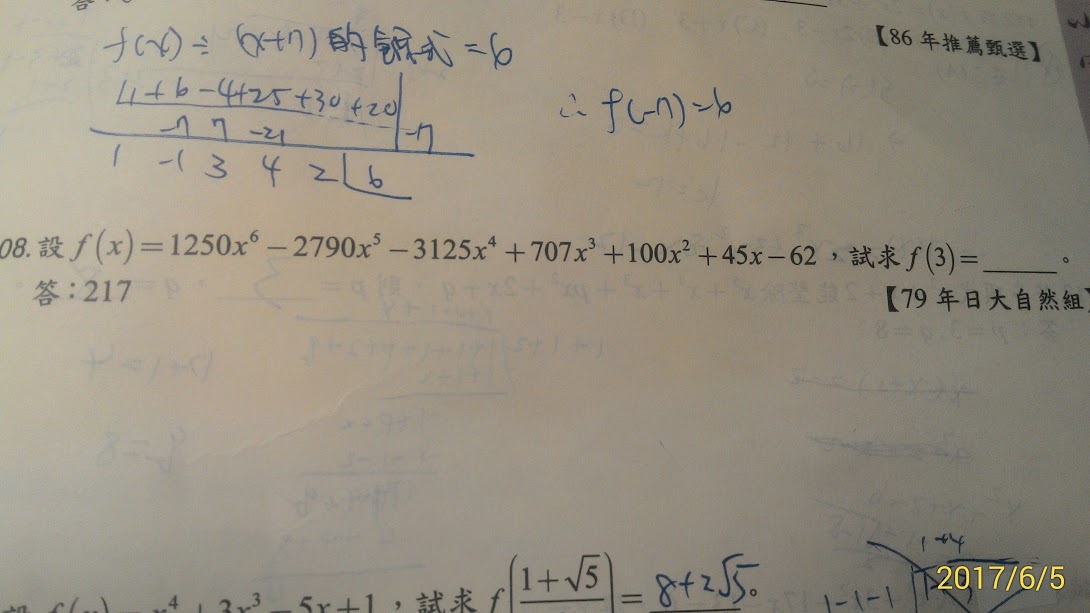 答:
【86年推薦甄選】
f(x)÷(x+7)的餘式=6
1+6-4+25+30+20
-7 7 -21 -7
1 -1 3 4 2 6
∴f(-7)=6
08. 設 f(x)=1250x⁶-2790x⁵-3125x⁴+707x³+100x²+45x-62,試求 f(3)=______。
答:217
【79年日大自然組】
x⁴+3x³-5x+1,試求 f((1+√5)/ = 8+2√5。
1+4
1-1-1
2017/6/5